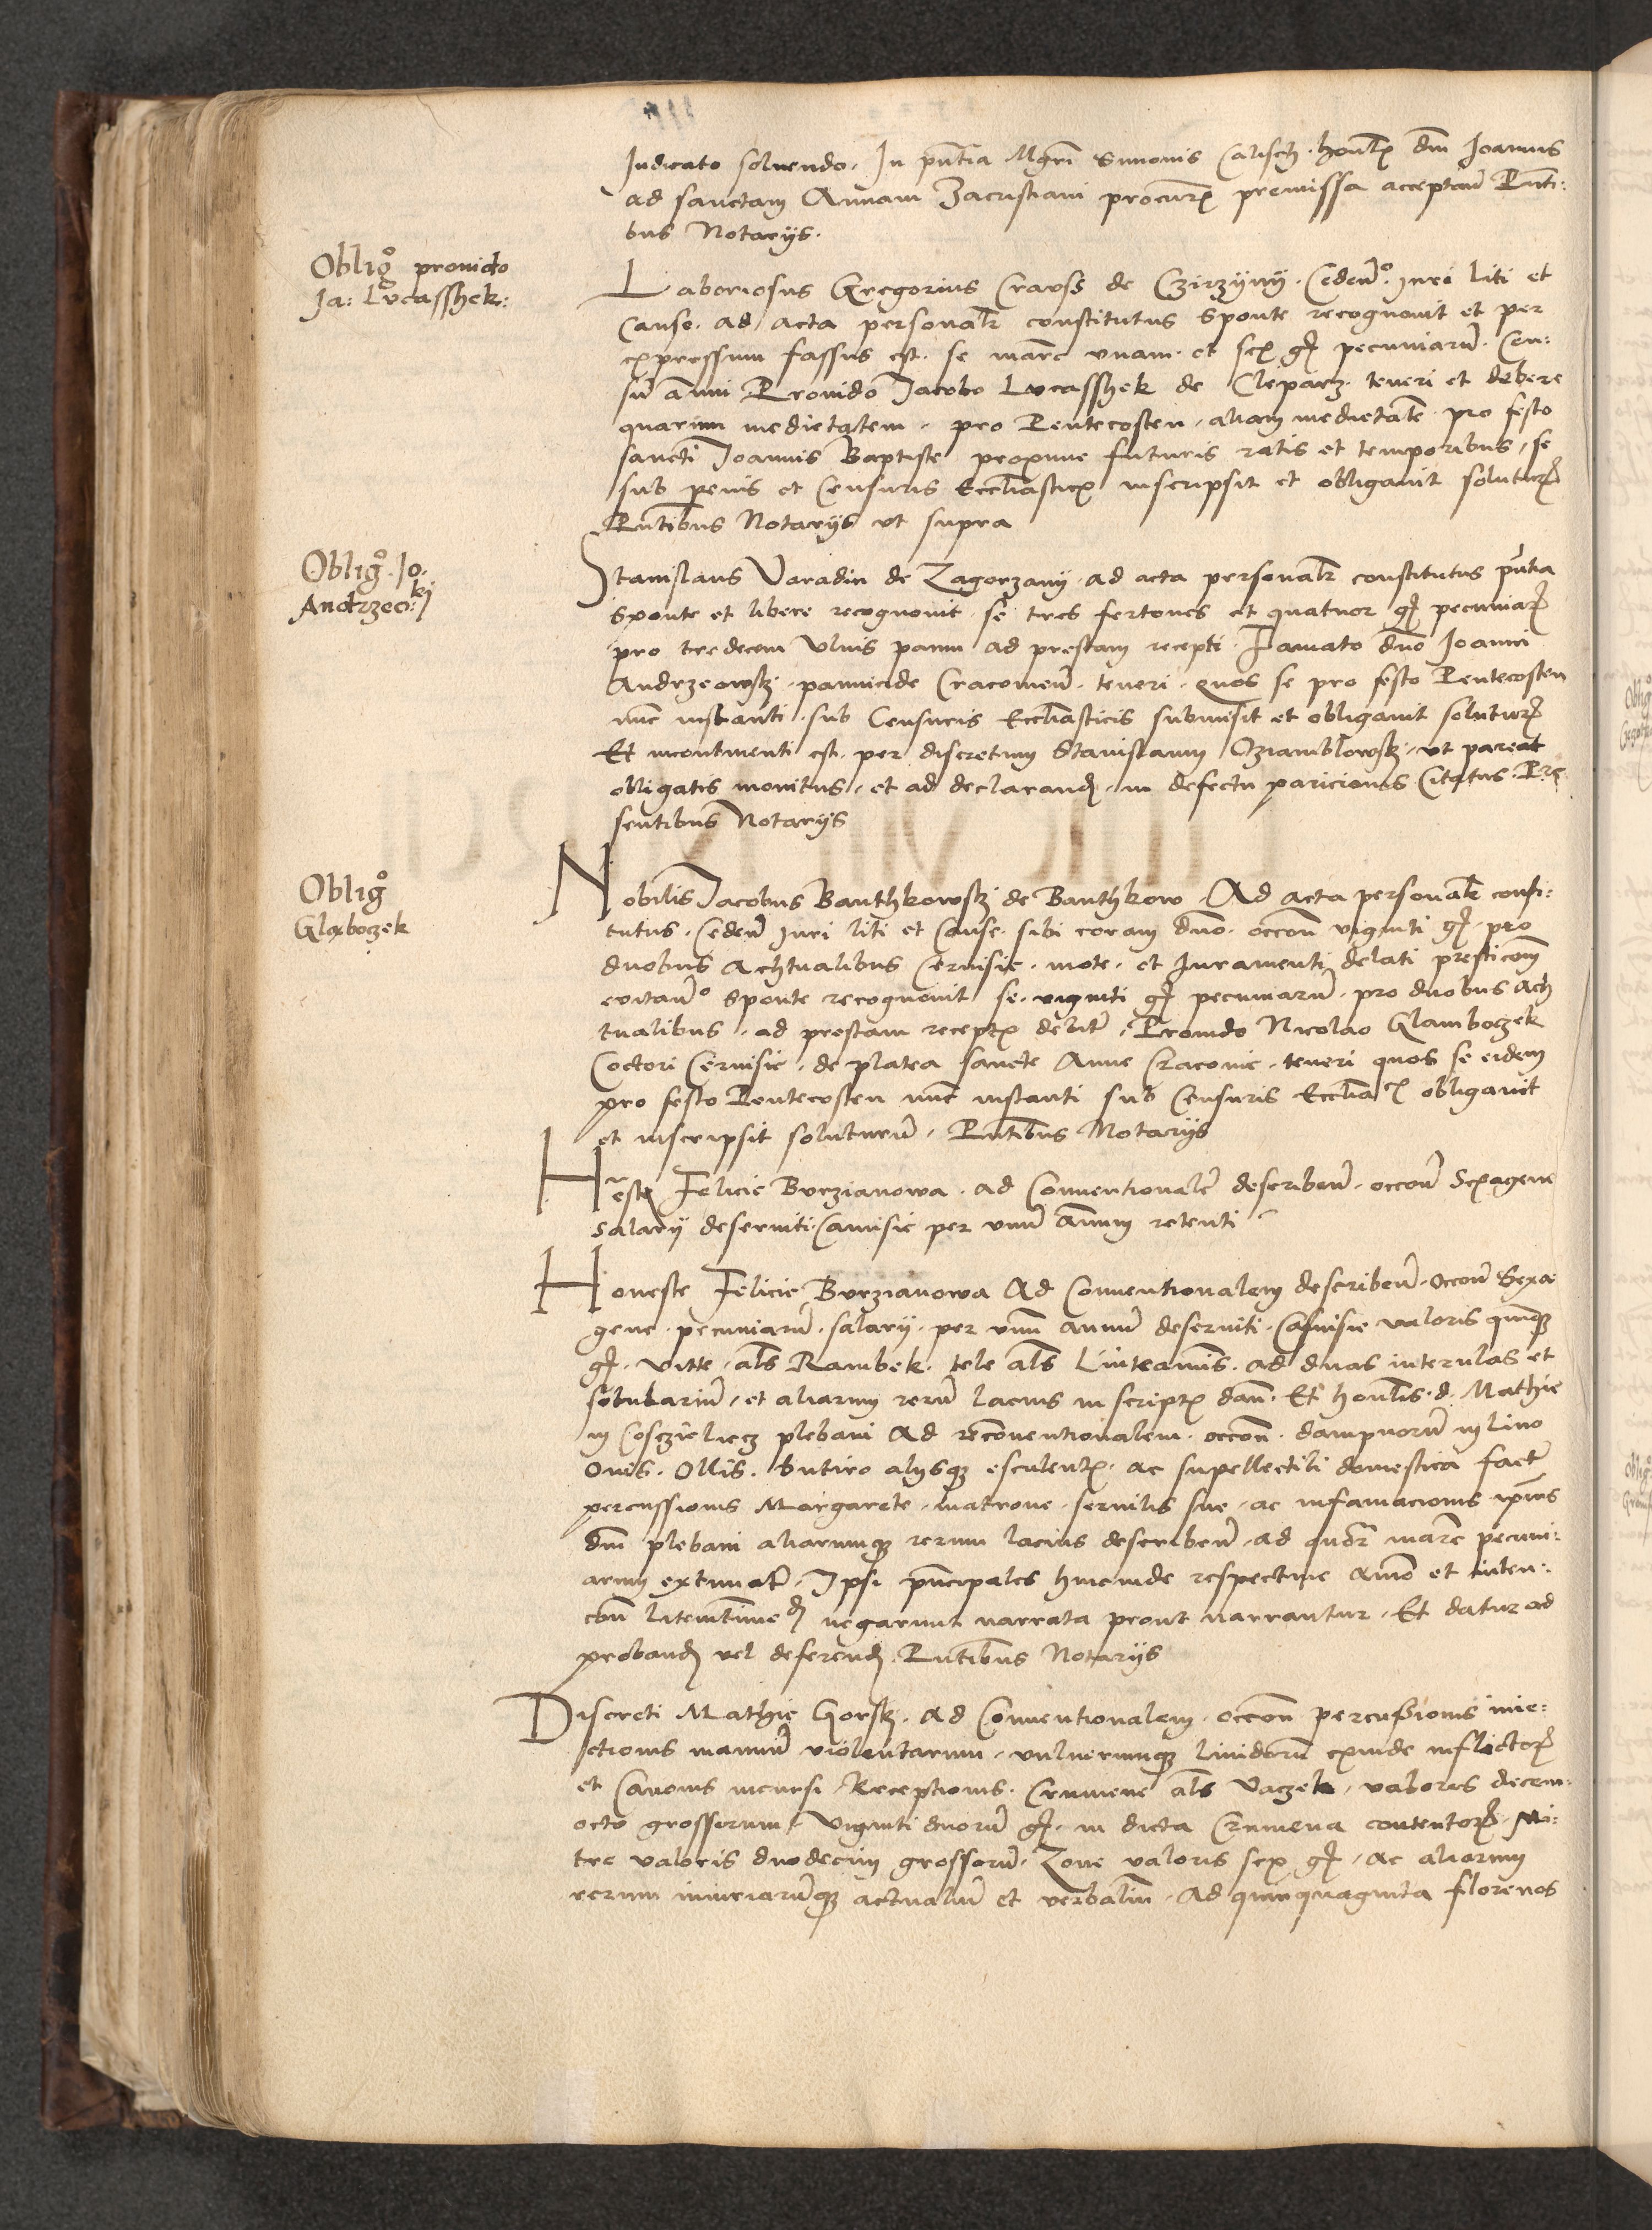 Iudicato soluendo. In pñtia Mgri Simonis Calisch. honl. dni Joannis
ad sanctam Annam Zacristiani procur. premissa acceptan̄ Pn̄ti:
bus Notarijs.
Obligo prouido
Ja: Lvcasshek:
Laboriosus Gregorius Crawss de Czirzyny. Ceden̄o. iuri liti et
Cause. ad acta personalr constitutus sponte recognouit et per
expressum fassus est. se marc vnam. et sex gr pecuniarū. Cen:
su anni Prouido Jacobo Lvcasshek de Cleparz. teneri et debere
quarum medietatem. pro Pentecosten, aliam medietatē pro festo
sancti Joannis Baptiste proxime futuris ratis et temporibus, se
sub penis et Censuris Eccliasticis inscripsit et obligauit soluturū
Pntibus Notarijs vt supra
Oblig. Jo.
Andrzeoki
Stanislaus Varadin de Zagorzany. ad acta personalr constitutus pntia
sponte et libere recognouit. se tres fertones et quatuor gr pecuniarū
pro tredecem Vlnis panni ad prestam recepti. Famato dno Joanni
Andrzeowsky. pannicide Cracouien̄. teneri. quos se pro festo Pentecosten
nunc instanti. sub Censuris Eccliasticis submisit et obligauit soluturū
Et incontinenti est. per discretum Stanislaum Oziamblowsky, vt pareat
obligatis monitus, et ad declarand, in defectu paricionis Citatus. Pre
sentibus Notarijs
Obligo
Glaboczek
Nobilis Jacobus Banthkowsky de Banthkow. Ad acta personalr consti:
tutus. Ceden̄ iuri liti et Cause. sibi coram dno. occon̄ viginti gr. pro
duobus achtualibus Ceruisie. mote. et Iuramenti delati presticom
euitan̄o sponte recognouit se. viginti gr pecuniarū. pro duobus Ach
tualibus. ad prestam receptis. Prouido Nicolao Glamboczek
Coctori Ceruisie, de platea sancte Anne Cracouie. teneri quos se eidem
pro festo Pentecosten nūc instanti sub Censuris Ecclia obligauit
et inscripsit soluturū. Pntibus Notarijs
Hn̄este Felicie Burzianowa. ad Conuentionalē describen̄. occon̄ Sexagene
salarij deseruiti. Camisie per vnū annum retenti
Honeste Felicie Burzianowa Ad Conuentionalem describen̄. occon̄ Sexa
gene. pecuniarū. salarij. per vnū annū deseruiti. Camisie valoris quinque
gr. vitte. als Rambek. tele als Linteaminis. ad duas interulas et
subuarium, et aliarum rerū lacius in scriptis dan̄. Et honlis. d. Mathie
in Cosczielecz plebani Ad reconuentionalem. occon̄. dampnorū in lino
Ouis. Ollis. butiro alijsque esculentis. ac supellectili domestica fact̄
percussionis Margarete. matrone. seruilis sue, ac infamacionis ipsius
dni plebani aliarumque rerum lacius describen̄. ad quatuor marc pecuni:
arum extimat̄. Ipsi pn̄cipales hincinde respectiue animo et inten:
cōn litem negarunt narrata prout narrantur. Et datur ad
proband vel deferend. Pntibus Notarijs
Discreti Mathie Gorsky. ad Conuentionalem. occon̄ percussionis inie:
ctionis manuū violentarum, vulnerumque liuidorū exinde inflictorū
et Canonis incursi. Receptionis. Crumene als Vaczek, valoris decem
octo grossorum. Viginti duorū gr. in dicta Crumena contentorū. Mi:
tre valoris duodecim grossorū. Zone valoris sex gr, ac aliarum
rerum iniuriarūque actualiū et verbaliū. Ad quinquaginta florenos